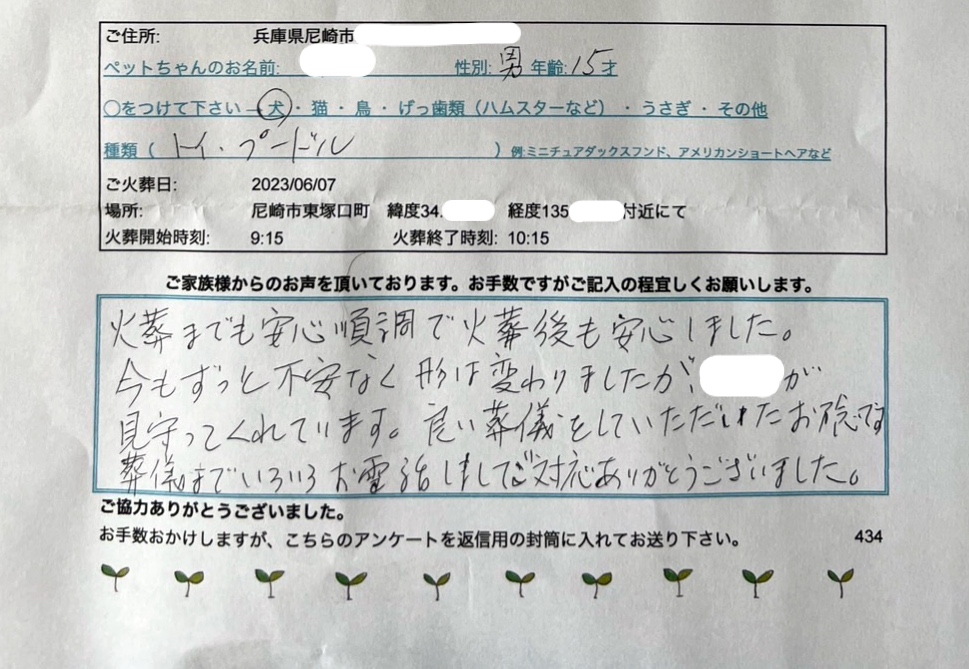 ご住所: 兵庫県尼崎市
ペットちゃんのお名前: 性別: 男 年齢: 15才
○をつけて下さい→犬・猫・鳥・げっ歯類（ハムスターなど）・うさぎ・その他
種類（トイ・プードル）例:ミニチュアダックスフンド、アメリカンショートヘアなど
ご火葬日: 2023/06/07
場所: 尼崎市東塚口町 緯度34. 経度135 付近にて
火葬開始時刻: 9:15 火葬終了時刻: 10:15
ご家族様からのお声を頂いております。お手数ですがご記入の程宜しくお願いします。
火葬までも安心順調で火葬後も安心しました。
今もずっと不安なく形は変わりましたが、が
見守ってくれています。良い葬儀をしていただいたお陰です
葬儀までいろいろお電話しましてご対応ありがとうございました。
ご協力ありがとうございました。
お手数おかけしますが、こちらのアンケートを返信用の封筒に入れてお送り下さい。 434